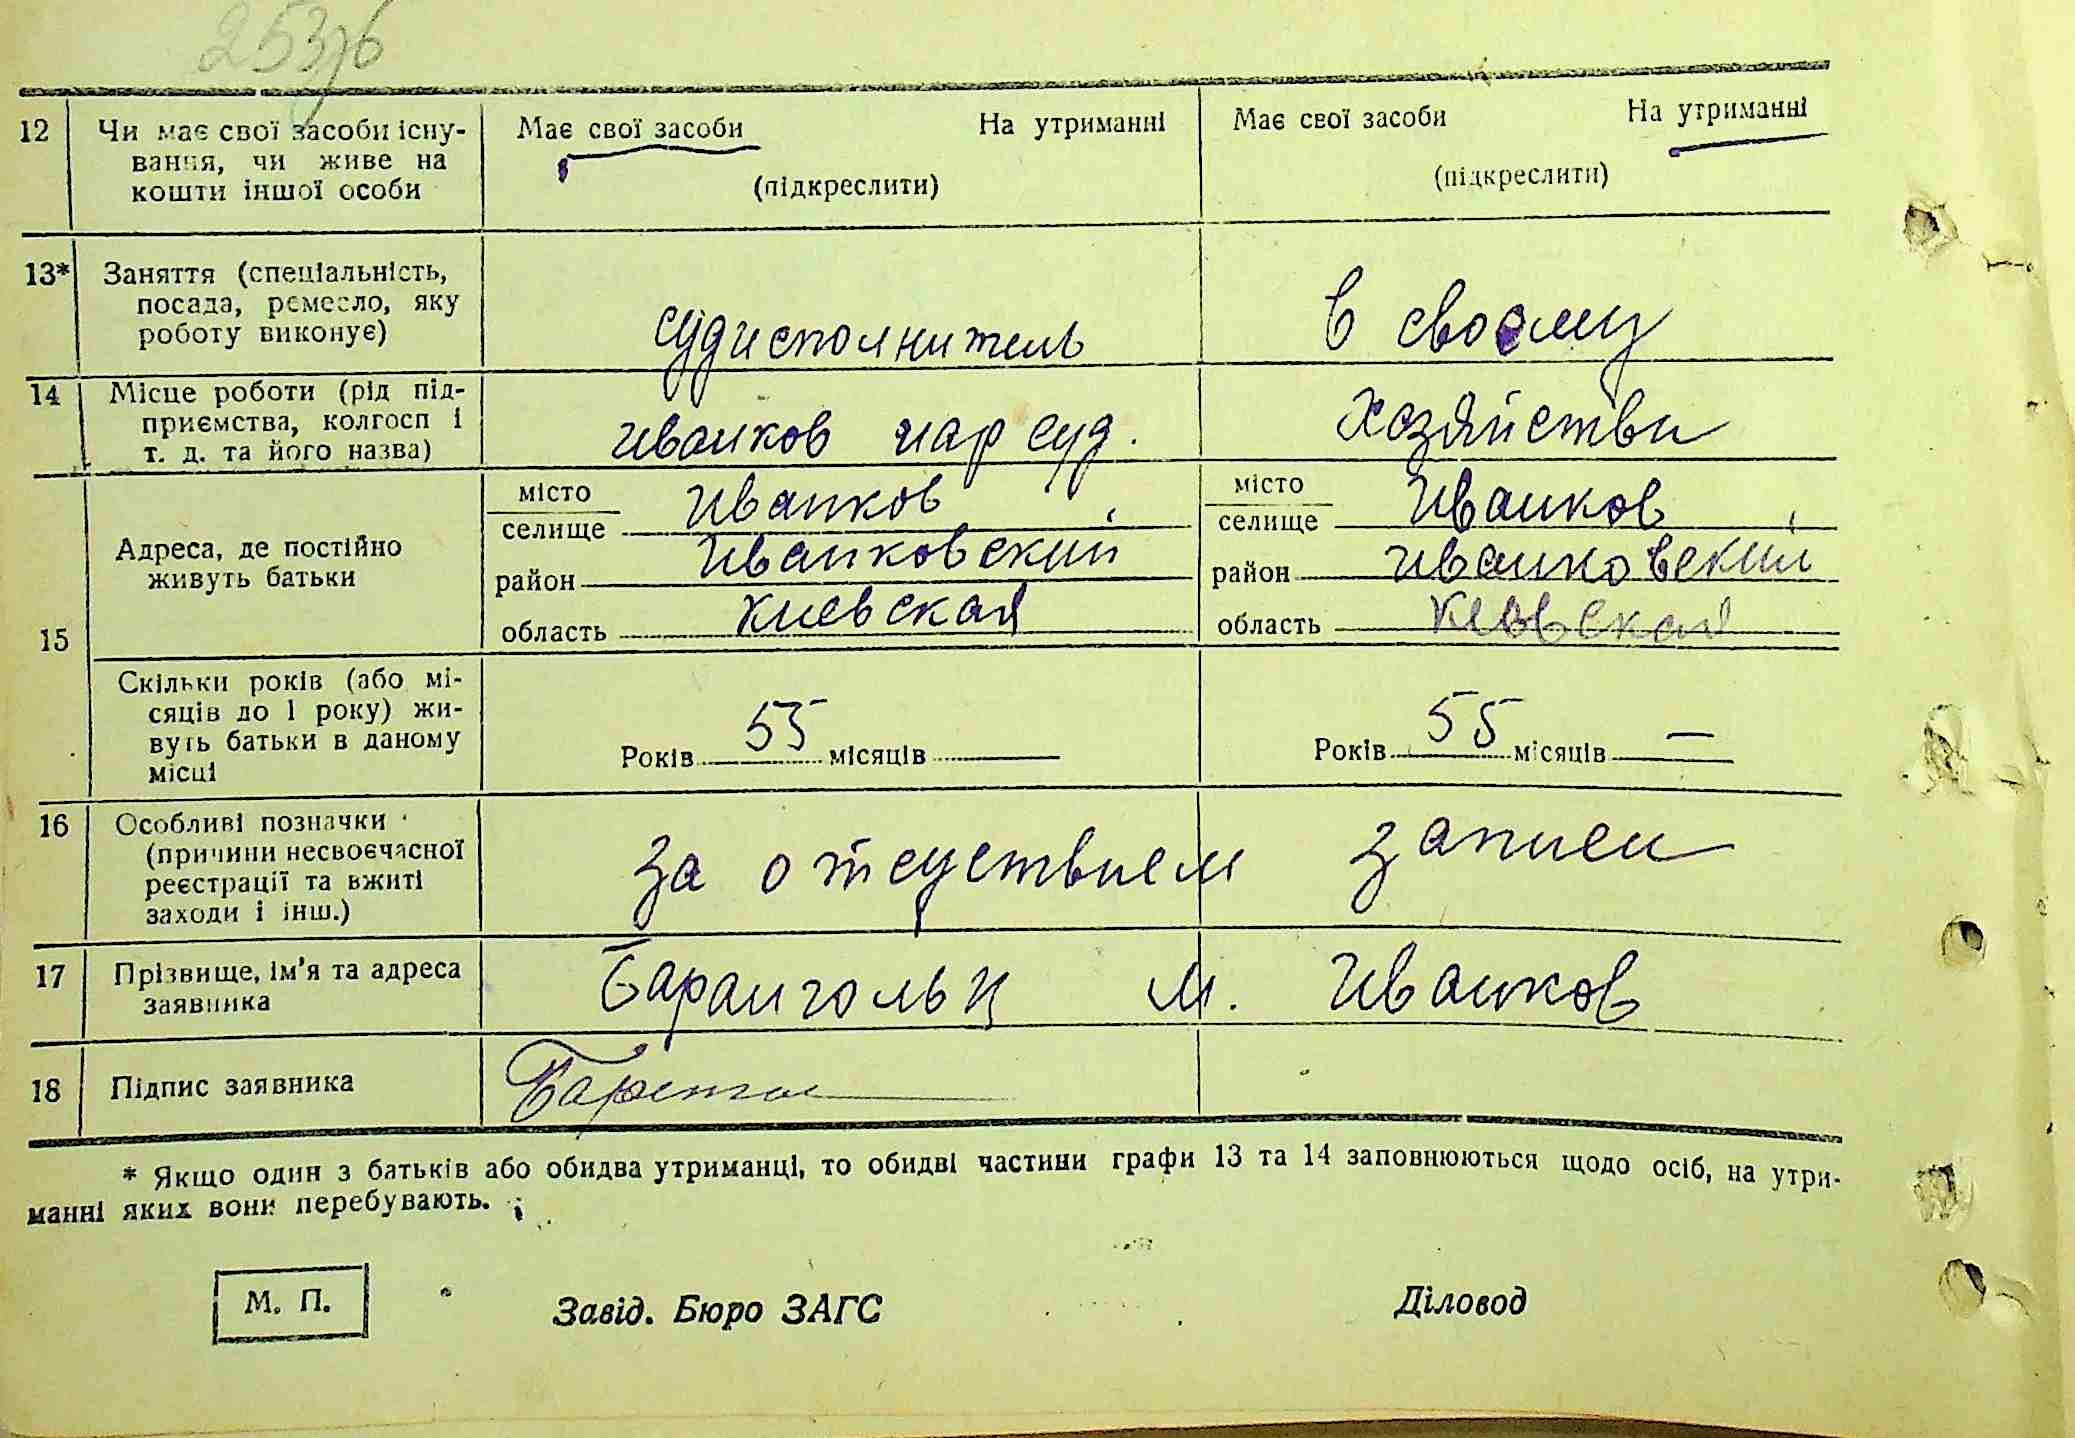 253
12 Чи має свої засоби існу- Має свої засоби На утриманні Має свої засоби На утриманні
вання, чи живе на (підкреслити) (підкреслити)
кошти іншої особи
13* Заняття (спеціальність,
посада, ремесло, яку
роботу виконує) судисполнитель в своему
14 Місце роботи (рід під-
приємства, колгосп і иванков нар суд. хозяйстви
т. д. та його назва)
15 Адреса, де постійно
живуть батьки
місто Иванков місто Иванков
селище селище
район Иванковский район Иванковский
область Киевская область Киевская
Скільки років (або мі-
сяців до 1 року) жи-
вуть батьки в даному Років 55 місяців Років 55 місяців —
місці
16 Особливі позначки
(причини несвоєчасної
реєстрації та вжиті за отсуствием записи
заходи і інш.)
17 Прізвище, ім'я та адреса Барангольц м. Иванков
заявника
18 Підпис заявника
* Якщо один з батьків або обидва утриманці, то обидві частини графи 13 та 14 заповнюються щодо осіб, на утри-
манні яких вони перебувають.
М. П. Завід. Бюро ЗАГС Діловод